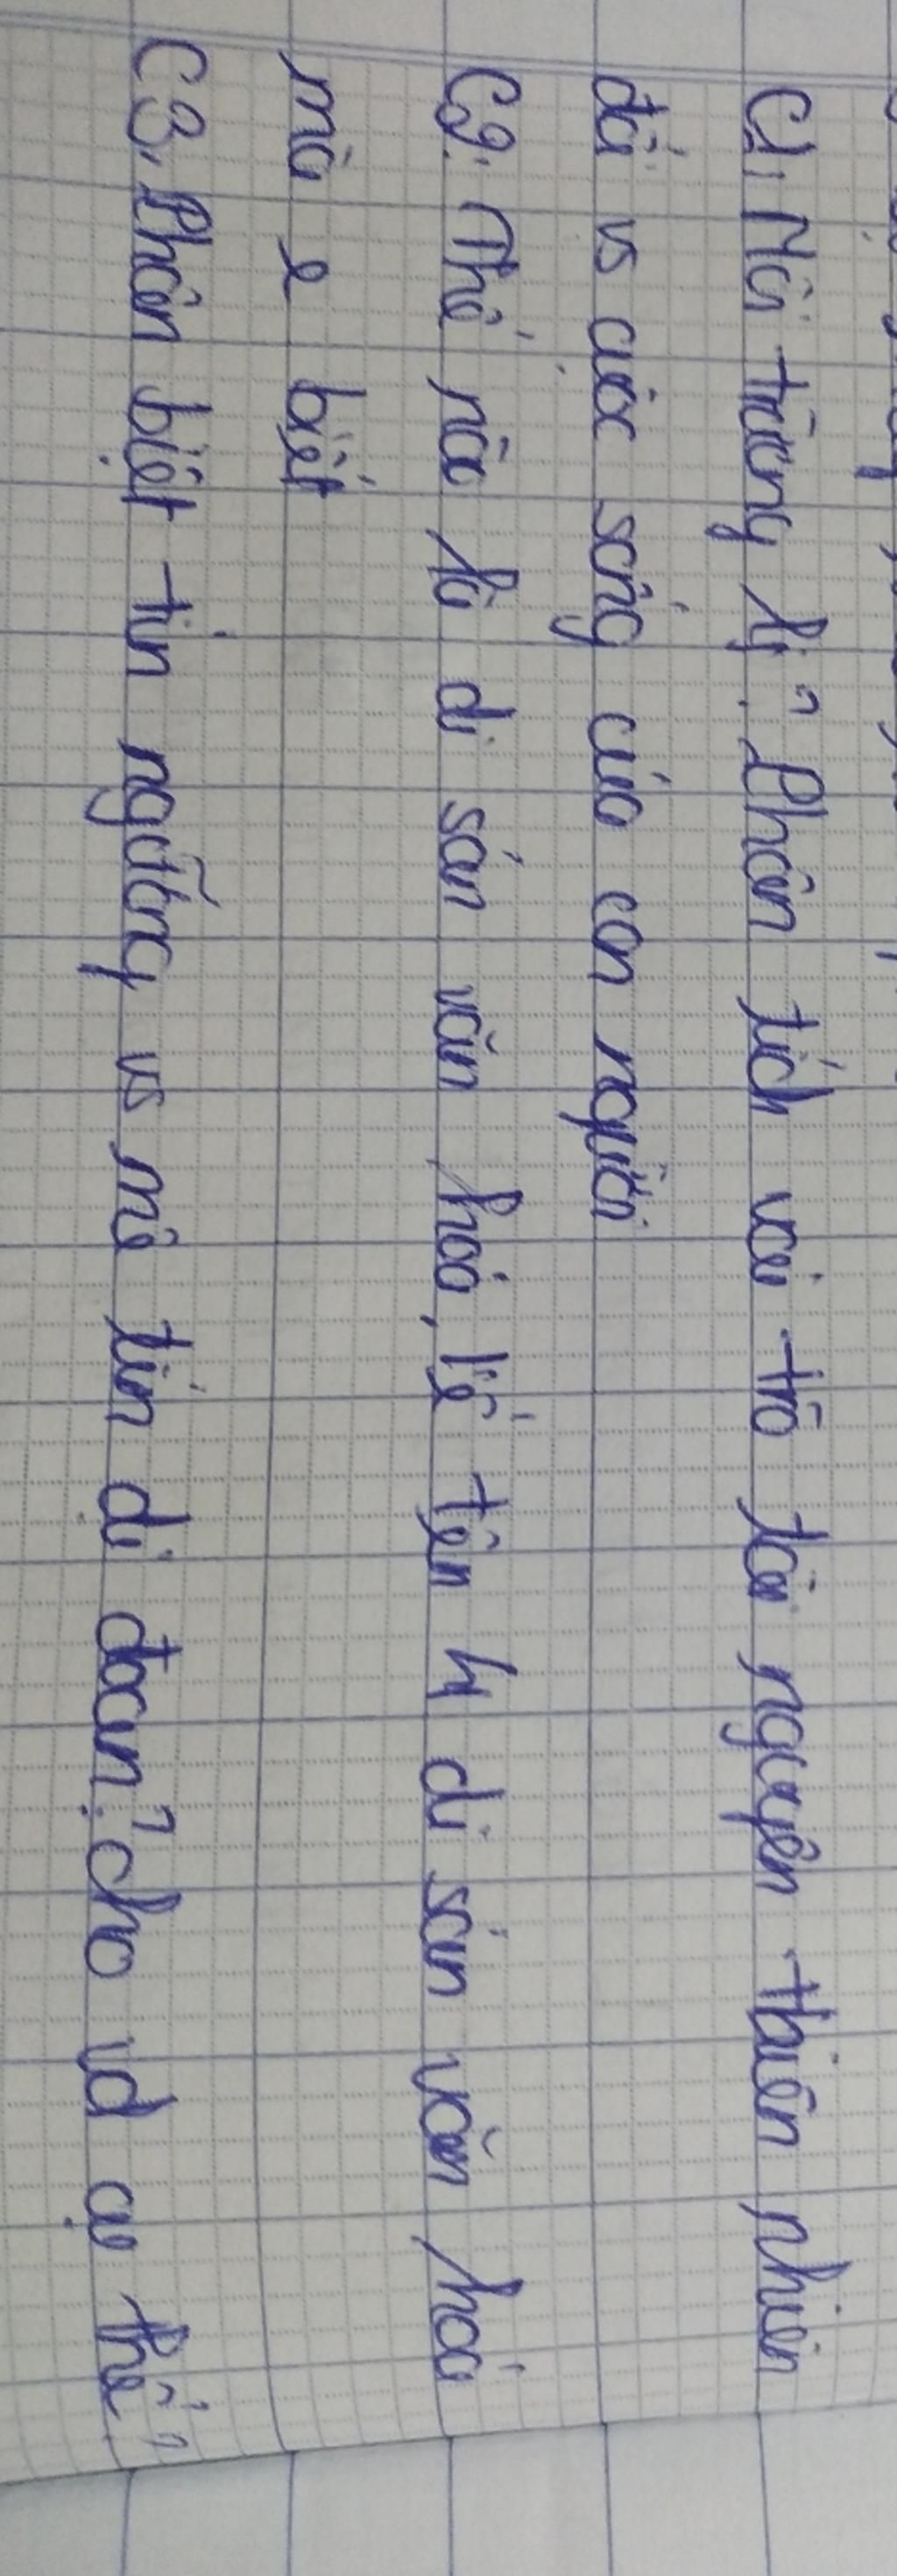 C1: Môi trường là j? Phân tích vai trò tài nguyên thiên nhiên
đối vs cuộc sống của con người
C2: Thế nào là di sản văn hoá, kể tên 4 di sản văn hoá
mà e biết
C3. Phân biệt tín ngưỡng vs mê tín dị đoan? cho vd cụ thể?